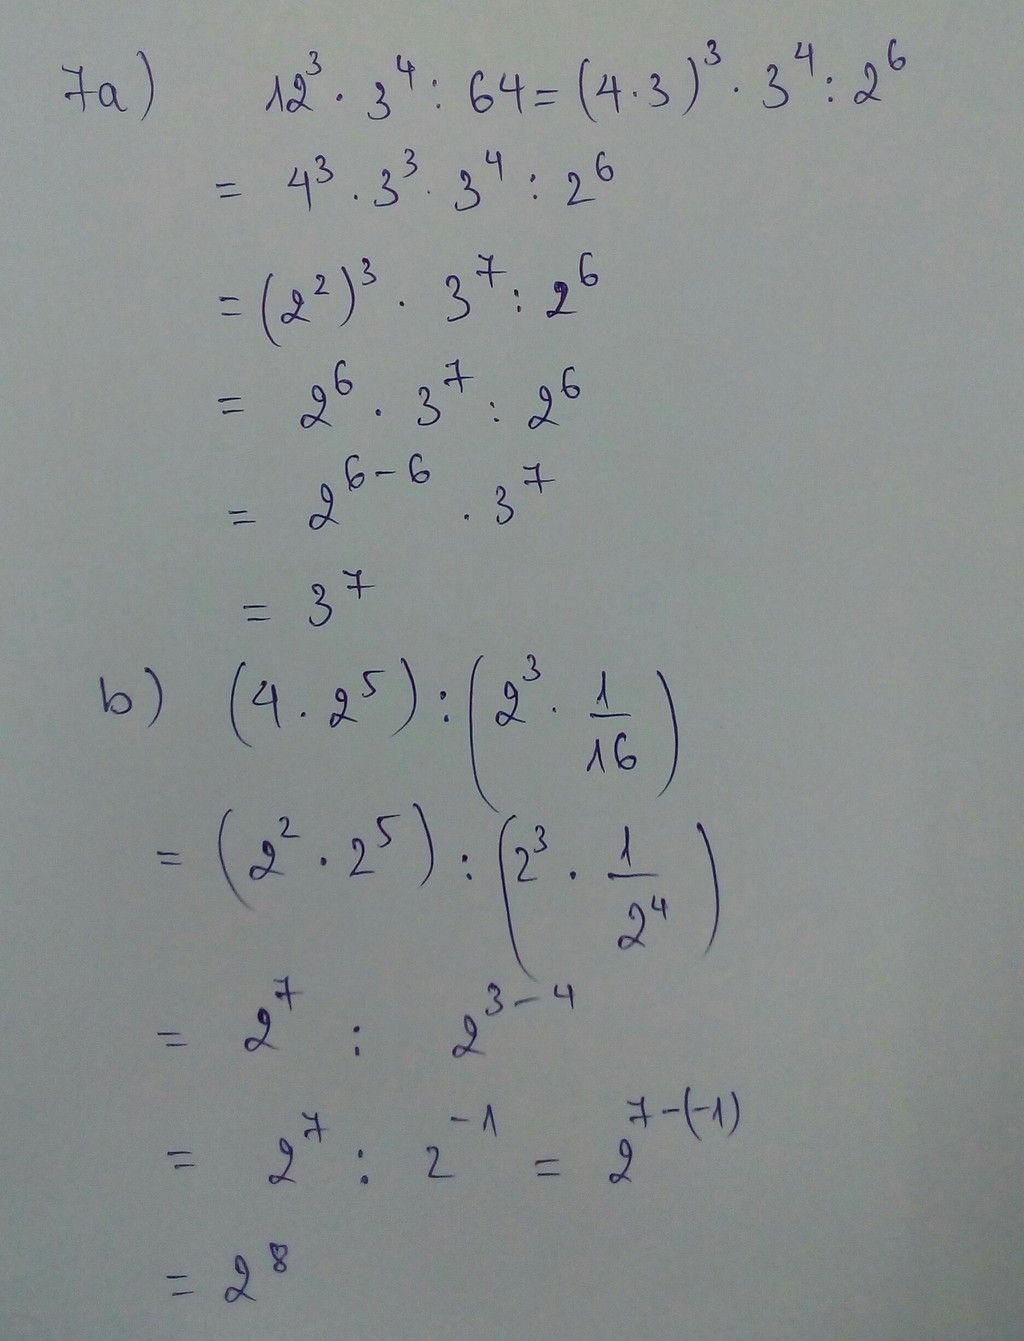 7a) 12³ · 3⁴ : 64 = (4 · 3)³ · 3⁴ : 2⁶
= 4³ · 3³ · 3⁴ : 2⁶
= (2²)³ · 3⁷ : 2⁶
= 2⁶ · 3⁷ : 2⁶
= 2⁶⁻⁶ · 3⁷
= 3⁷
b) (4 · 2⁵) : (2³ · 1/16)
= (2² · 2⁵) : (2³ · 1/2⁴)
= 2⁷ : 2³⁻⁴
= 2⁷ : 2⁻¹ = 2⁷⁻⁽⁻¹⁾
= 2⁸